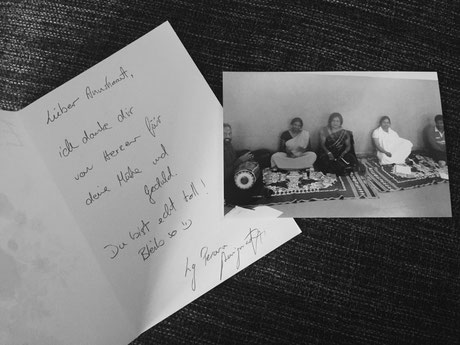 Lieber
ich danke dir
von Herzen für
deine Mühe und
Geduld.
Du bist echt toll!
Bleib so :)
Lg